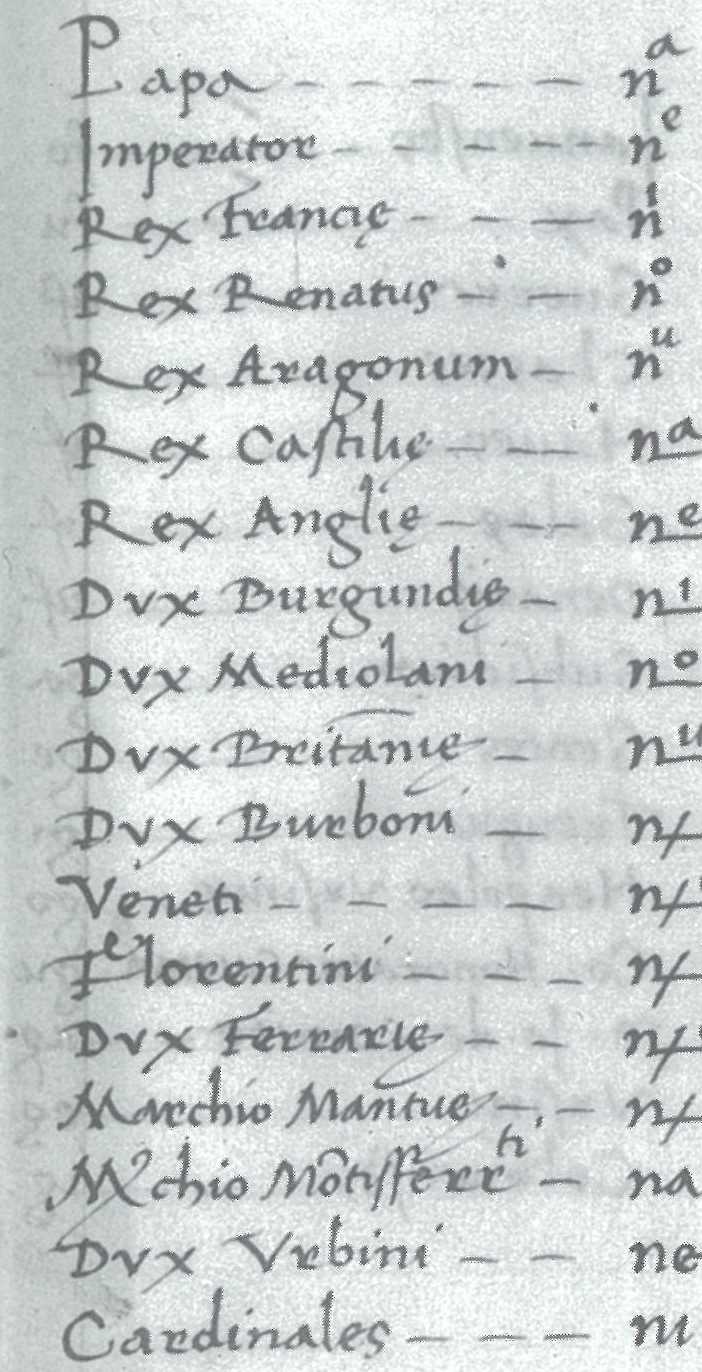 Papa - - - - - - nᵃ
Imperator - - - - - nᵉ
Rex Francię - - - nⁱ
Rex Renatus - - nᵒ
Rex Aragonum - nᵘ
Rex Castilię - - - nᵃ
Rex Anglię - - - nᵉ
Dvx Burgundię - nⁱ
Dvx Mediolani - nᵒ
Dvx Britānię - nᵘ
Dvx Burboni - n
Veneti - - - - n
Florentini - - - n
Dvx Ferrarię - - n
Marchio Mantuę - - n
Mᵒchio Mōtisferrᵗⁱ - na
Dvx Vrbini - - ne
Cardinales - - - ni